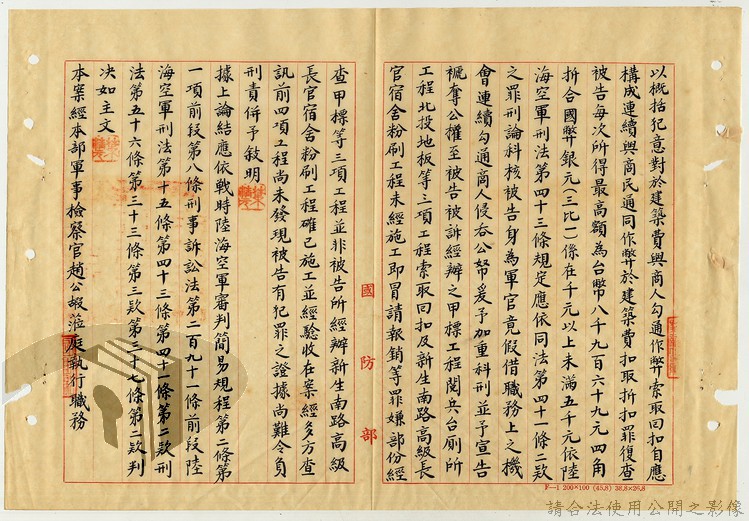 以概括犯意對於建築費與商人勾通作弊索取回扣自應
構成連續與商民通同作弊於建築費扣取折扣罪復查
被告每次所得最高額為台幣八千九百六十九元四角
折合國幣銀元(三比一)係在千元以上未滿五千元依陸
海空軍刑法第四十三條規定應依同法第四十一條二款
之罪刑論科核被告身為軍官竟假借職務上之機
會連續勾通商人侵吞公帑爰予加重科刑並予宣告
褫奪公權至被告被訴經辦之甲標工程閱兵台廁所
工程北投地板等三項工程索取回扣及新生南路高級長
官宿舍粉刷工程未經施工即冒請報銷等罪嫌部份經
國防部
查甲標等三項工程並非被告所經辦新生南路高級
長官宿舍粉刷工程確已施工並經驗收在案經多方查
訊前四項工程尚未發現被告有犯罪之證據尚難令負
刑責併予敘明
據上論結應依戰時陸海空軍審判簡易規程第二條第
一項前段第八條刑事訴訟法第二百九十一條前段陸
海空軍刑法第十五條第四十三條第四十一條第二款刑
法第五十六條第三十三條第三款第三十七條第二款判
決如主文
本案經本部軍事檢察官趙公嘏蒞庭執行職務
F—1 200×100 (45.8) 38.8×26.8
請合法使用公開之影像